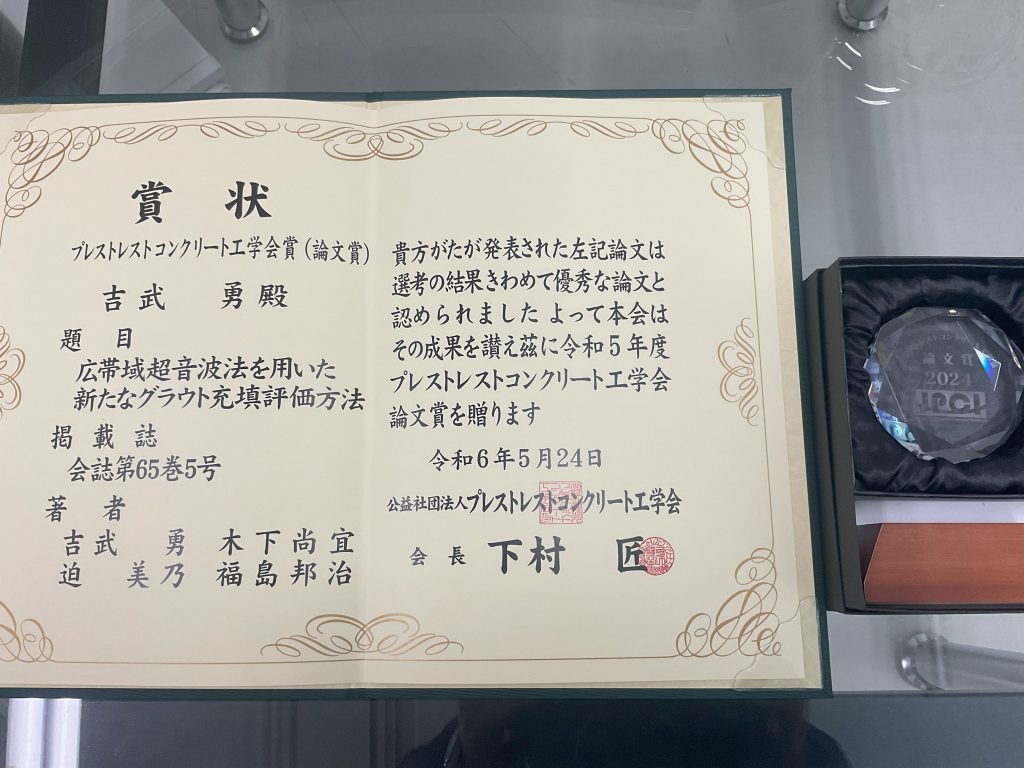 賞 状
プレストレストコンクリート工学会賞(論文賞)
吉武 勇殿
題 目
広帯域超音波法を用いた
新たなグラウト充填評価方法
掲 載 誌
会誌第65巻5号
著 者
吉武 勇 木下尚宜
迫 美乃 福島邦治
貴方がたが発表された左記論文は
選考の結果きわめて優秀な論文と
認められました よって本会は
その成果を讃え茲に令和5年度
プレストレストコンクリート工学会
論文賞を贈ります
令和6年5月24日
公益社団法人プレストレストコンクリート工学会
会 長 下村 匠
論文賞
2024
JPCI